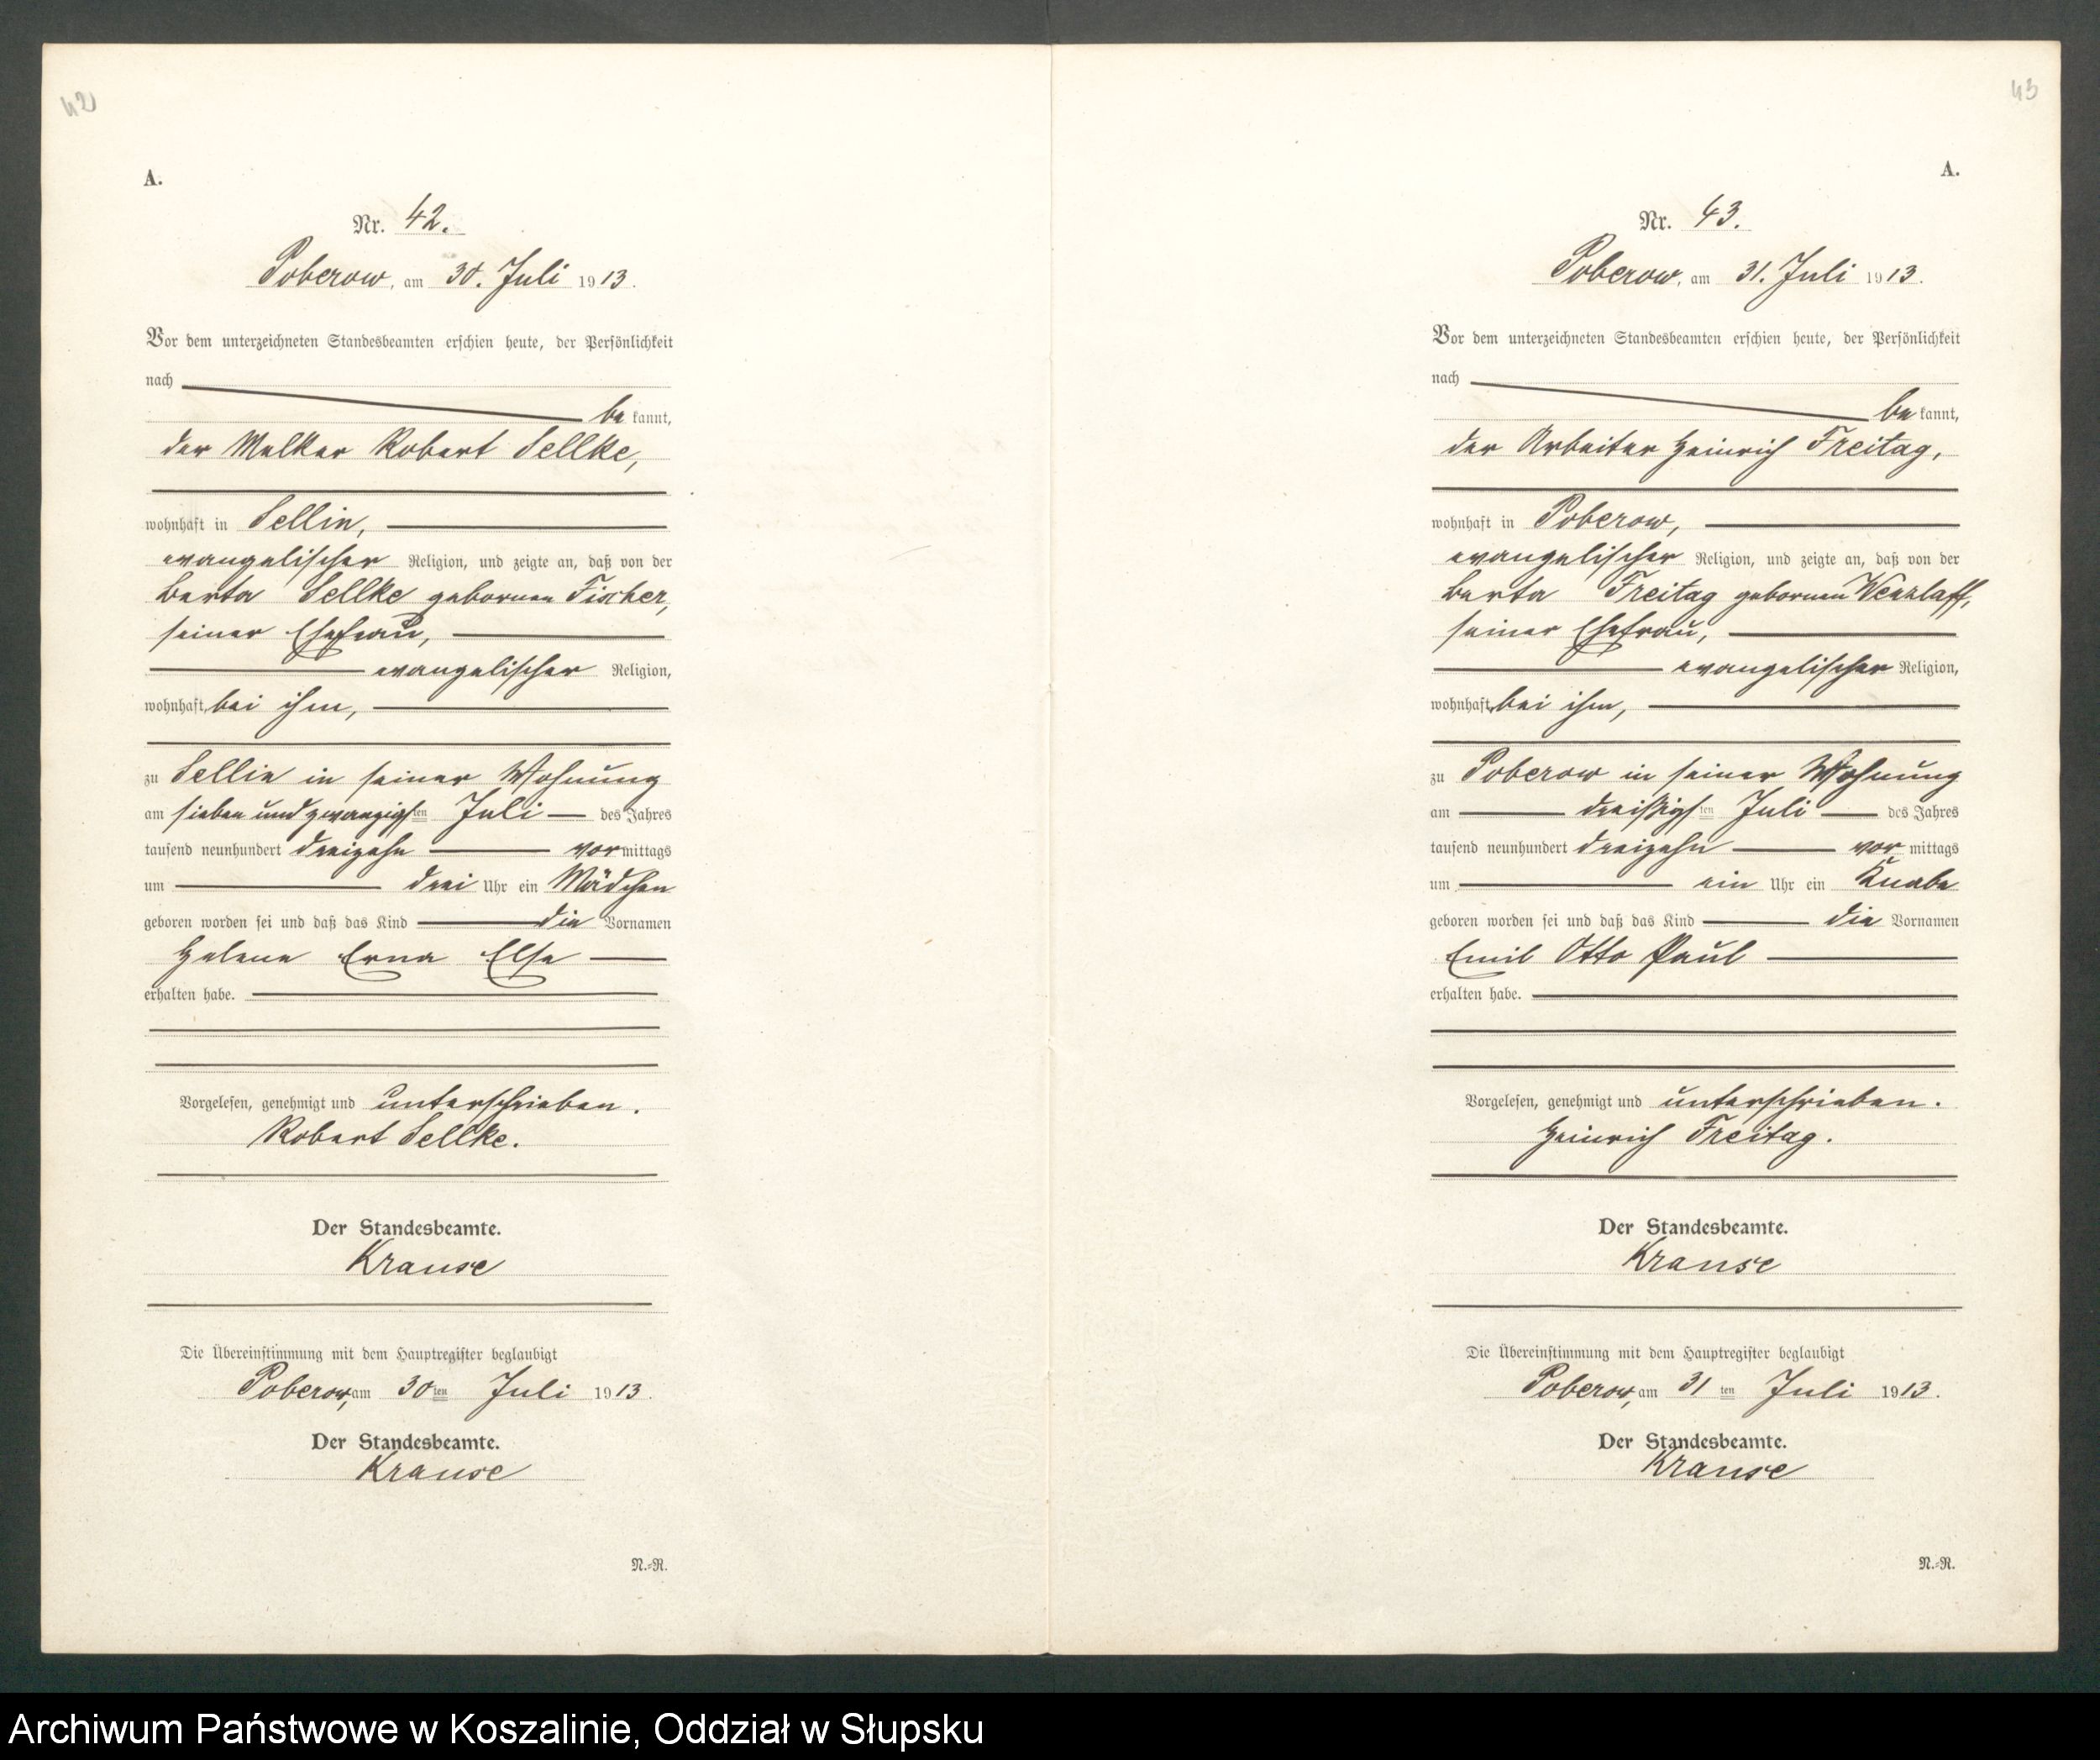 42
A.
Nr. 42.
Poberow, am 30. Juli 1913.
Vor dem unterzeichneten Standesbeamten erschien heute, der Persönlichkeit
nach
be kannt,
der Melker Robert Sellke,
wohnhaft in Sellin,
evangelischer Religion, und zeigte an, daß von der
Berta Sellke geborenen Fischer,
seiner Ehefrau,
evangelischer Religion,
wohnhaft bei ihm,
zu Sellin in seiner Wohnung
am sieben und zwanzigsten Juli des Jahres
tausend neunhundert dreizehn vormittags
um drei Uhr ein Mädchen
geboren worden sei und daß das Kind die Vornamen
Helene Erna Else
erhalten habe.
Vorgelesen, genehmigt und unterschrieben.
Robert Sellke.
Der Standesbeamte.
Krause
Die Übereinstimmung mit dem Hauptregister beglaubigt
Poberow, am 30ten Juli 1913.
Der Standesbeamte.
Krause
N.-R.
43
A.
Nr. 43.
Poberow, am 31. Juli 1913.
Vor dem unterzeichneten Standesbeamten erschien heute, der Persönlichkeit
nach
be kannt,
der Arbeiter Heinrich Freitag,
wohnhaft in Poberow,
evangelischer Religion, und zeigte an, daß von der
Berta Freitag geborenen Wenzlaff,
seiner Ehefrau,
evangelischer Religion,
wohnhaft bei ihm,
zu Poberow in seiner Wohnung
am dreißigsten Juli des Jahres
tausend neunhundert dreizehn vormittags
um ein Uhr ein Knabe
geboren worden sei und daß das Kind die Vornamen
Emil Otto Paul
erhalten habe.
Vorgelesen, genehmigt und unterschrieben.
Heinrich Freitag.
Der Standesbeamte.
Krause
Die Übereinstimmung mit dem Hauptregister beglaubigt
Poberow, am 31 ten Juli 1913.
Der Standesbeamte.
Krause
N.-R.
Archiwum Państwowe w Koszalinie, Oddział w Słupsku